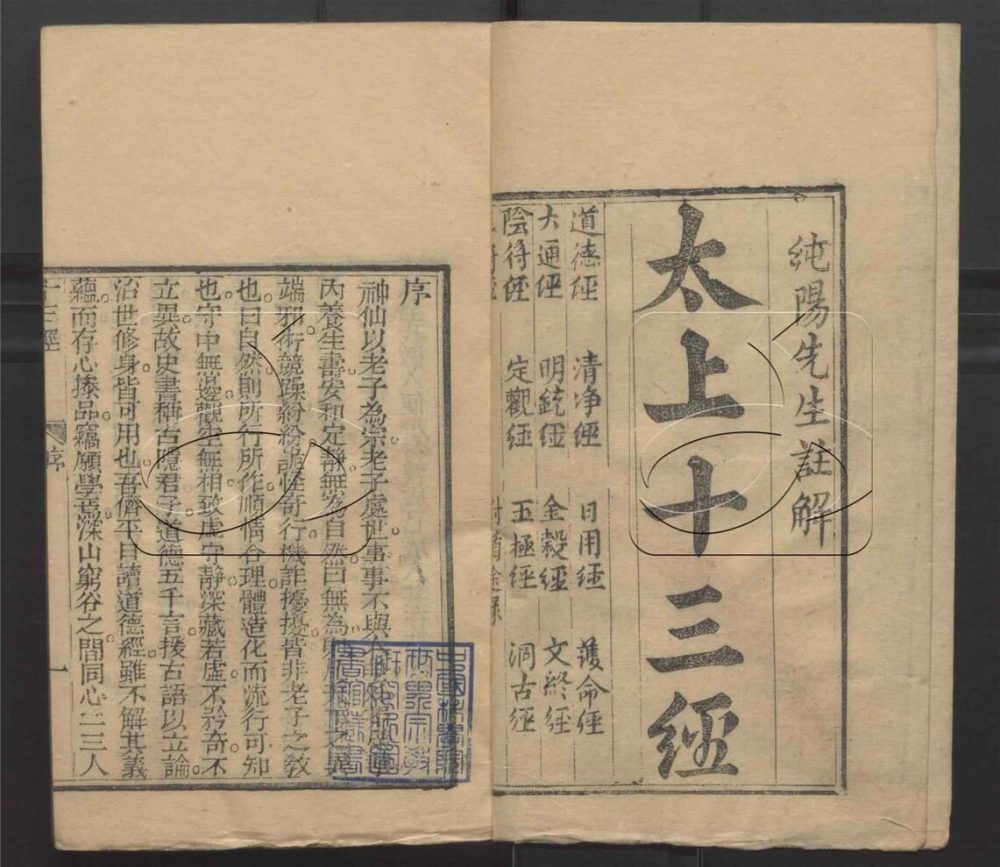 純陽先生註解
太上十三經
道德經 清淨經 日用經 護命經
大通經 明鏡經 金穀經 文終經
陰符經 定觀經 五極經 洞古經
序
神仙以老子為宗老子處世事事不與
內養生壽安和定靜無為自然曰無為
端邪術競躁紛紛詭怪奇行機詐擾擾皆非老子之敎
也曰自然則所行所作順情合理體造化而流行可知
也守中無邊觀空無相致虛守靜深藏若虛不矜奇不
立異故史書稱古隱君子道德五千言援古語以立論
治世修身皆可用也吾儕平日讀道德經雖不解其義
蘊而存心操品竊願學焉深山窮谷之間同心二三人
十三經 序 一